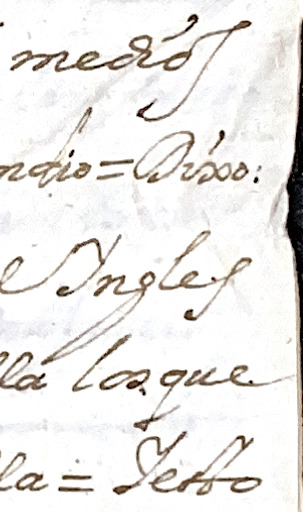 medios
ndio = Dixo:
e Ingles
lla los que
lla = Testo